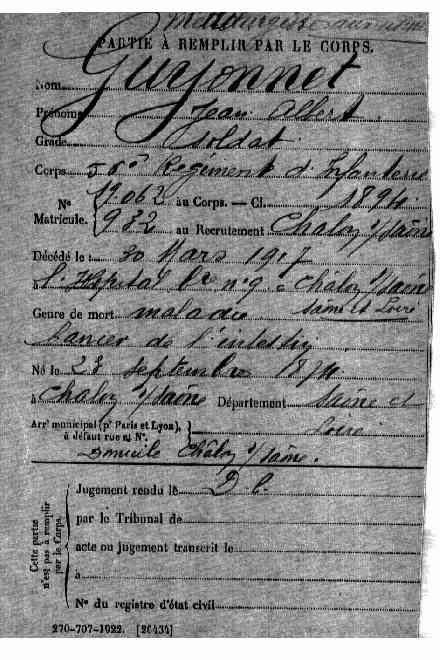 PARTIE À REMPLIR PAR LE CORPS.
Nom Guyonnet
Prénoms Jean Albert
Grade Soldat
Corps 56e Régiment d'Infanterie
No 19062 au Corps. — Cl. 1894
Matricule. 932 au Recrutement Chalon s/Saône
Décédé le 30 Mars 191
à l'Hôpital no 9 à Châlon s/Saône
Saône et Loire
Genre de mort maladie
Cancer de l'intestin
Né le 23 septembre 1874
à Chalon s/Saône Département Saône et
Loire
Arrt municipal (pr Paris et Lyon),
à défaut rue et No.
Domicile Châlon s/Saône.
Cette partie n'est pas à remplir par le Corps.
Jugement rendu le D. C.
par le Tribunal de
acte ou jugement transcrit le
à
No du registre d'état civil
270-707-1922. [26434]